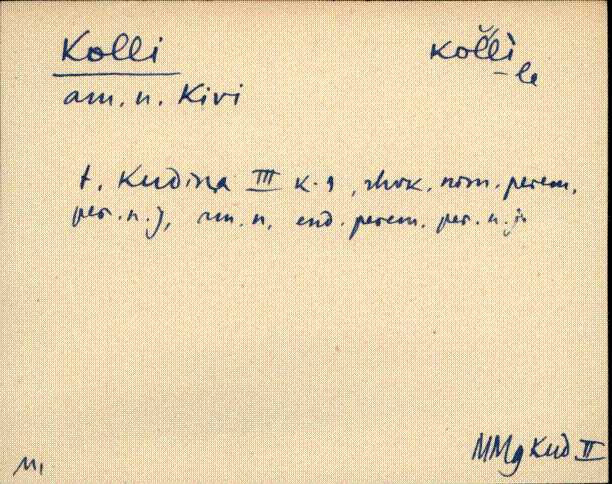 Kolli
kolli
-le
am. n. Kivi
t. Kudina III k. 9, rhvk. nim. perem.
per. n. j, am. n. end. perem. per. n. j.
M,
MMg Kud II